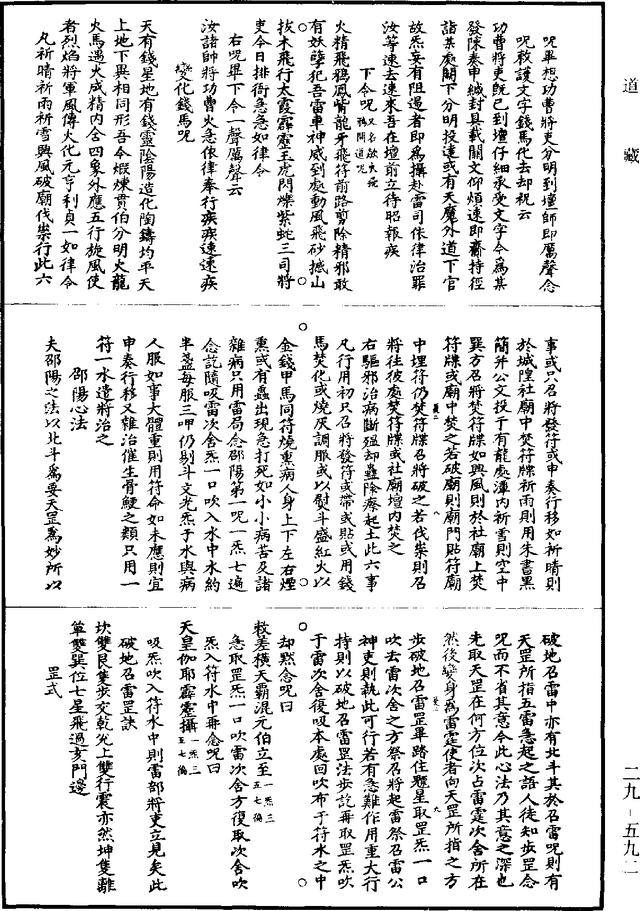 道藏
呪畢想功曹將吏分明到壇師即厲聲念
呪救護文字錢馬化去却祝云
功曹將吏旣已到壇仔細承受文字今爲某
發陳奏申緘封具載關文仰煩速即齎持徑
詣某處關下分明投達或有天魔外道下官
故炁妄有阻遏者即爲攝赴雷司依律治罪
汝等速去速來吾在壇前立待昭報疾
下令呪
火精飛鴉鳳觜龍牙飛符前路剪除精邪敢
有妖孽犯吾雷車神威到處動風飛砂撼山
拔木飛行太霞霹靂玉虎閃爍紫蛇三司將
吏今日排衙急急如律令
右呪畢下令一聲厲聲云
汝諸帥將功曹火急依律奉行疾疾速速疾
變化錢馬呪
天有錢星地有錢靈陰陽造化陶鑄均平天
上地下異相同形吾今煅煉貫伯分明火龍
火馬遇火成精內含四象外應五行旋風使
者烈焰將軍風傳火化元亨利貞一如律令
凡祈晴祈雨祈雪興風破廟伐祟行此六
事或只召將發符或申奏行移如祈晴則
於城隍社廟中焚符牒祈雨則用朱書黑
簡并公文投于有龍處潭內祈雪則空中
巽方召將焚符牒如興風則於社廟上焚
符牒或廟中焚之若破廟則廟門貼符廟
中埋符仍焚符牒召將破之若伐祟則召
將往彼處焚符牒或社廟壇內焚之
右驅邪治病斷瘟却蟲除瘵起土此六事
凡行用初只召將發符或帶或貼或用錢
馬焚化或燒灰調服或以熨斗盛紅火以
金錢甲馬同符燒熏病人身上下左右煙
熏或有蟲出現急打死如小小病苦及諸
雜病只用雷局念邵陽第一呪一炁七遍
念訖隨吸雷次舍炁一口吹入水中水約
半盞每服三呷仍剔斗文光炁于水與病
人服如事大體重則用符命如未應則宜
申奏行移又雜治催生骨鯁之類只用一
符一水遣將治之
邵陽心法
夫邵陽之法以北斗爲要天罡爲妙所以
破地召雷中亦有北斗其於召雷呪則有
天罡所指五雷急起之語人徒知步罡念
呪而不省其意今此心法乃其意之深也
先取天罡在何方位次占雷霆次舍所在
然後變身爲雷霆使者向天罡所指之方
步破地召雷罡畢踏住魁星取罡炁一口
吹去雷次舍之方祭召將起雷祭召雷公
神吏則執此可行若有急難作用重大行
持則以破地召雷罡法步訖再取罡炁吹
于雷次舍復吸本處回吹布于符水之中
却默念呪曰
救差橫天霸混元伯立至一炁三五七徧
急取罡炁一口吹雷次舍方復取次舍吹
炁入符水中再念呪曰
天皇伽耶霹靂攝一炁三五七徧
吸炁吹入符水中則雷部將吏立見矣此
破地召雷罡訣
坎雙艮隻步交乾兌上雙行震亦然坤隻離
單雙巽位七星飛過亥門邊
罡式
二九-五九二